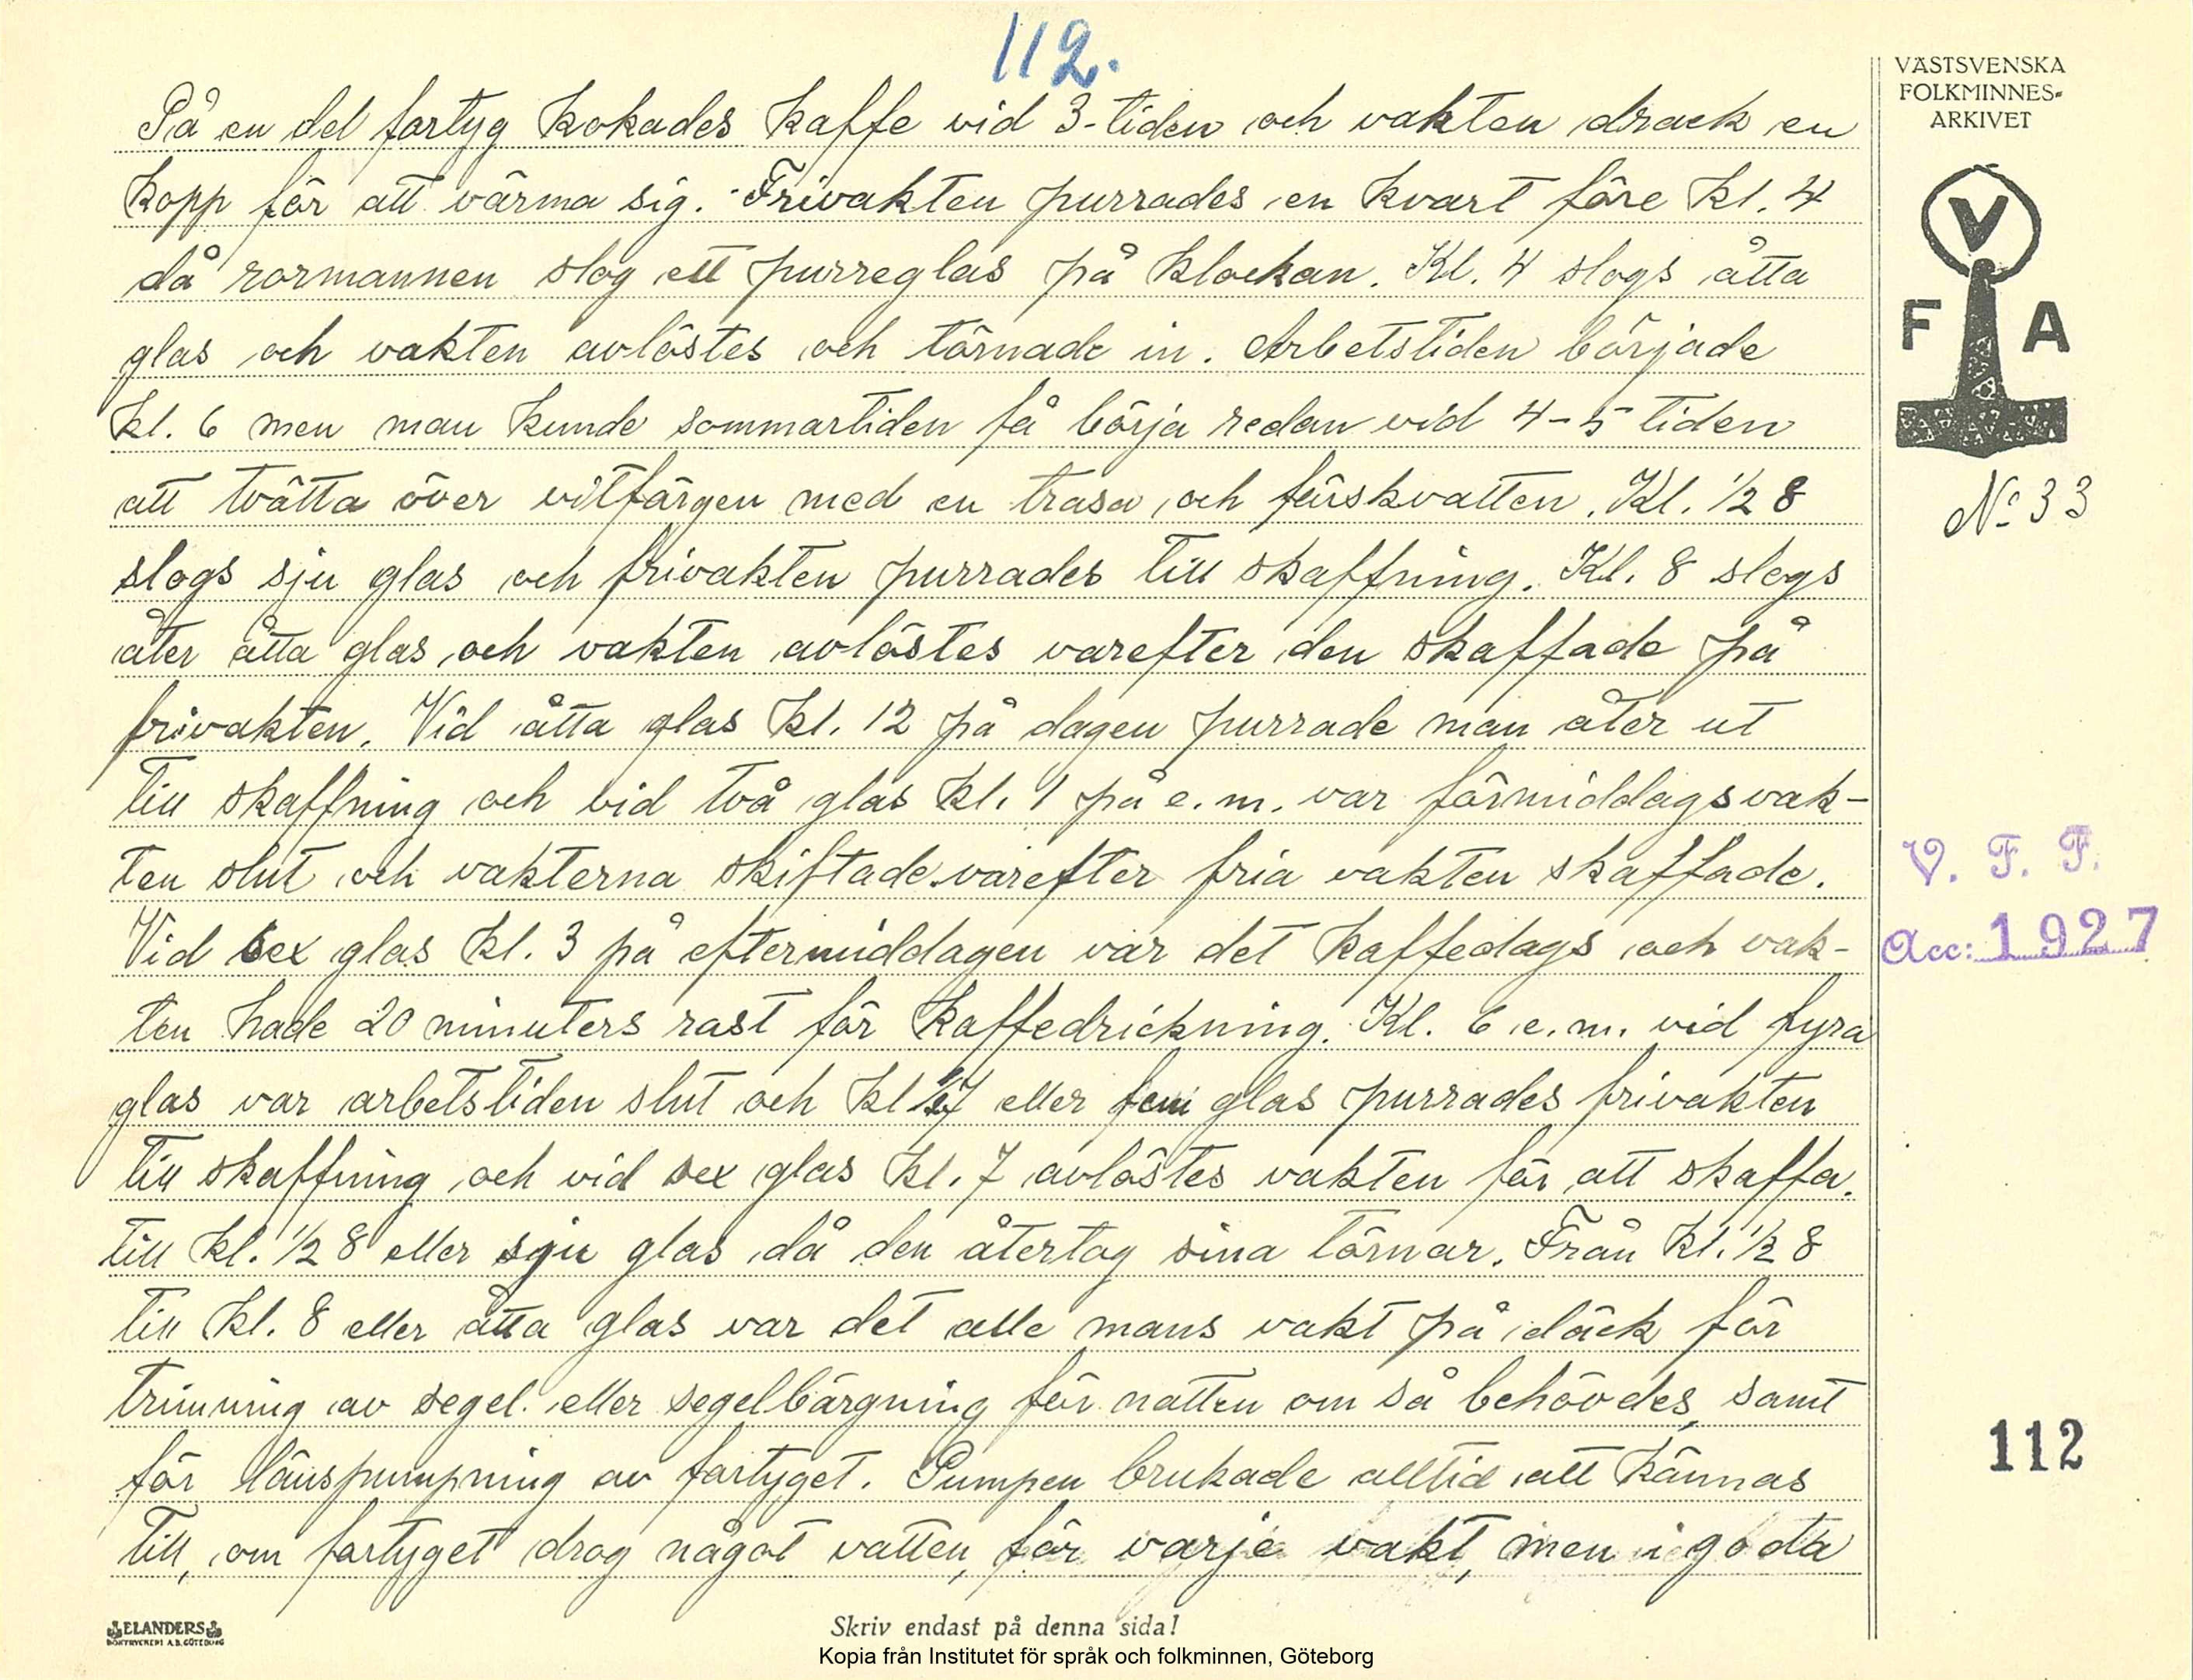 112.
På en del fartyg kokades kaffe vid 3-tiden och vakten drack en
kopp för att värma sig. Frivakten purrades en kvart före kl. 4
då rormannen slog ett purreglas på klockan. Kl. 4 slogs åtta
glas och vakten avlöstes och törnade in. Arbetstiden började
kl. 6 men man kunde sommartiden få börja redan vid 4-5 tiden
att tvätta över vitfärgen med en trasa och färskvatten. Kl. 1/2 8
slogs sju glas och frivakten purrades till skaffning. Kl. 8 slogs
åter åtta glas och vakten avlöstes varefter den skaffade på
frivakten. Vid åtta glas kl. 12 på dagen purrade man åter ut
till skaffning och vid två glas kl. 1 på e.m. var förmiddagsvak-
ten slut och vakterna skiftade varefter fria vakten skaffade.
Vid sex glas kl. 3 på eftermiddagen var det kaffedags och vak-
ten hade 20 minuters rast för kaffedrickning. Kl. 6 e.m. vid fyra
glas var arbetstiden slut och kl 1/2 7 eller fem glas purrades frivakten
till skaffning och vid sex glas kl. 7 avlöstes vakten för att skaffa.
till kl. 1/2 8 eller sju glas då den återtog sina törnar. Från kl. 1/2 8
till kl. 8 eller åtta glas var det alle mans vakt på däck för
trimning av segel. eller segelbärgning för natten om så behövdes, samt
för länspumpning av fartyget. Pumpen brukade alltid att kännas
till, om fartyget drog något vatten, för varje vakt, men i goda
VÄSTSVENSKA
FOLKMINNES-
ARKIVET
V
F A
No 33
V. F. F.
Acc: 1927
112
ELANDERS
BOKTRYCKERI A.B. GÖTEBORG
Skriv endast på denna sida!
Kopia från Institutet för språk och folkminnen, Göteborg